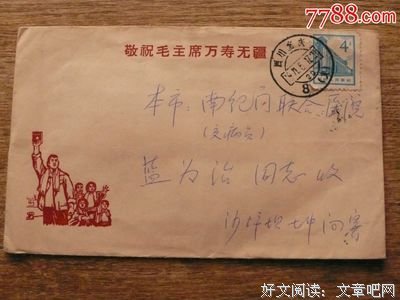 7788.com
敬祝毛主席万寿无疆
四川重庆
8
4
本市：南纪门联合医院
蓝为治 同志收
沙坪坝七中 向寄
好文阅读：文章吧网